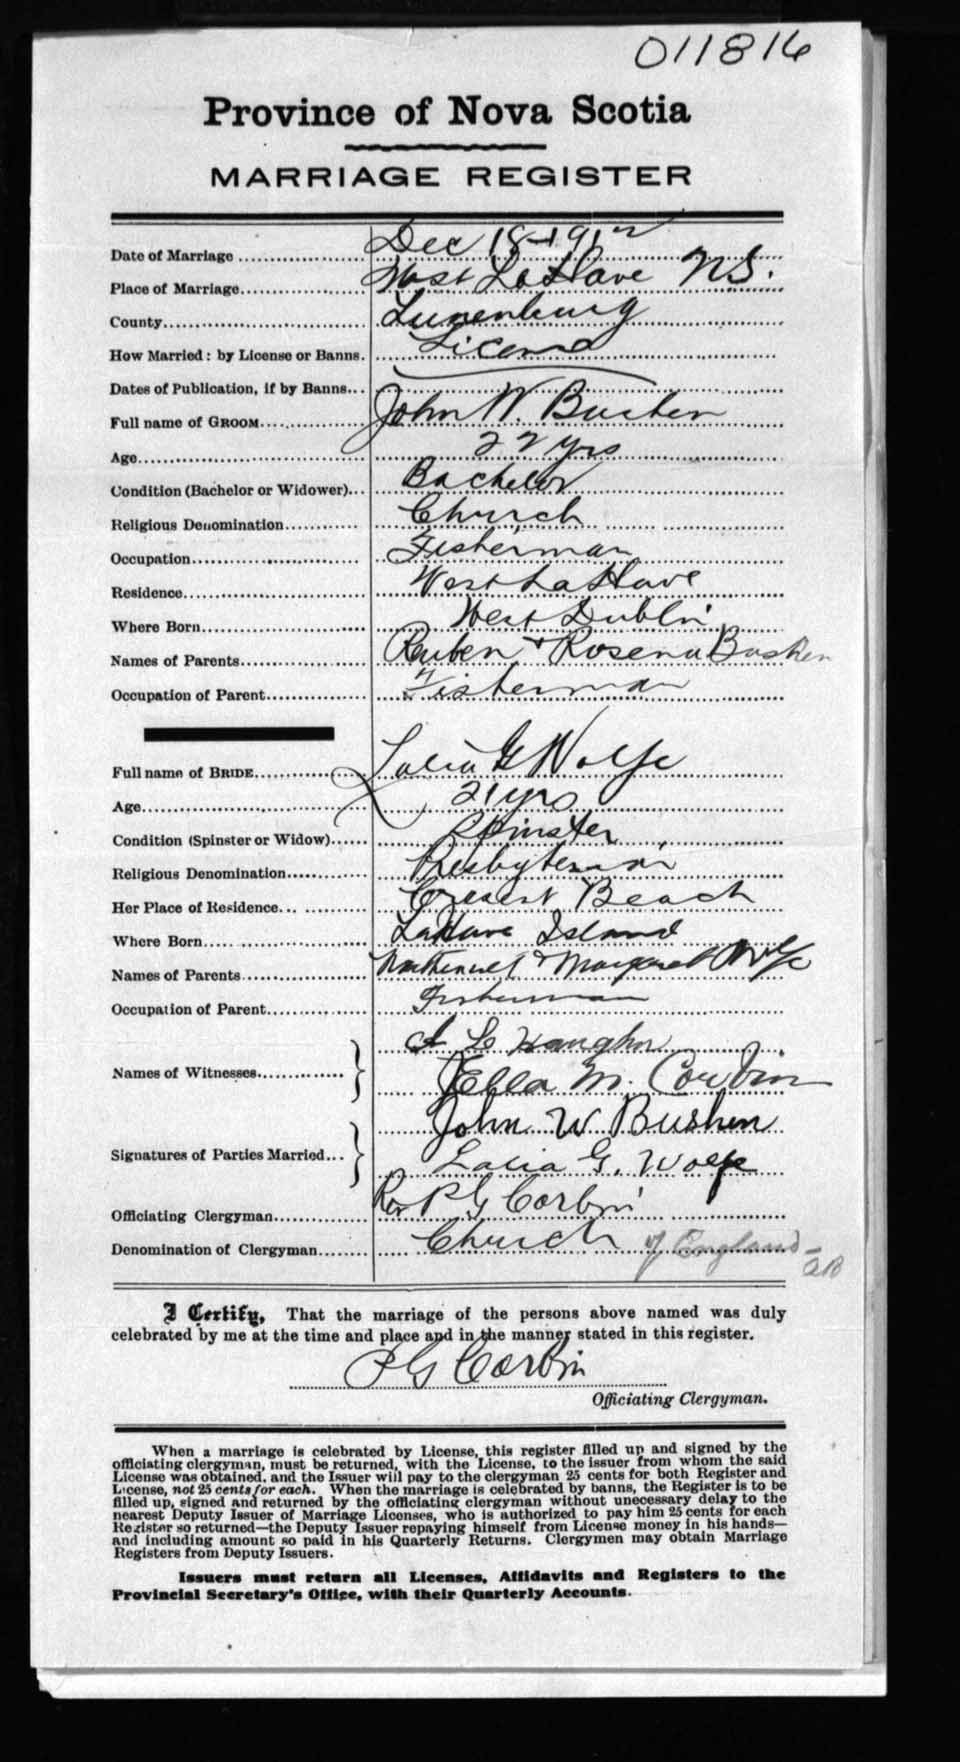 011816
Province of Nova Scotia
MARRIAGE REGISTER
Date of Marriage Dec 18-1912
Place of Marriage West LaHave N.S.
County Lunenburg
How Married: by License or Banns. License
Dates of Publication, if by Banns
Full name of GROOM John W. Bushen
Age 22 yrs
Condition (Bachelor or Widower) Bachelor
Religious Denomination Church
Occupation Fisherman
Residence West LaHave
Where Born West Dublin
Names of Parents Reuben & Rosena Bushen
Occupation of Parent Fisherman
Full name of BRIDE Lalia G Wolfe
Age 21 yrs
Condition (Spinster or Widow) Spinster
Religious Denomination Presbyterian
Her Place of Residence Cresent Beach
Where Born LaHave Island
Names of Parents Nathaniel & Margaret Wolfe
Occupation of Parent Fisherman
Names of Witnesses
Ella M. Corbin
John W Bushen
Signatures of Parties Married
Lalia G. Wolfe
Officiating Clergyman Rev P G Corbin
Denomination of Clergyman Church of England
I Certify, That the marriage of the persons above named was duly
celebrated by me at the time and place and in the manner stated in this register.
P G Corbin
Officiating Clergyman.
When a marriage is celebrated by License, this register filled up and signed by the
officiating clergyman, must be returned, with the License, to the issuer from whom the said
License was obtained, and the Issuer will pay to the clergyman 25 cents for both Register and
License, not 25 cents for each. When the marriage is celebrated by banns, the Register is to be
filled up, signed and returned by the officiating clergyman without unnecessary delay to the
nearest Deputy Issuer of Marriage Licenses, who is authorized to pay him 25 cents for each
Register so returned—the Deputy Issuer repaying himself from License money in his hands—
and including amount so paid in his Quarterly Returns. Clergymen may obtain Marriage
Registers from Deputy Issuers.
Issuers must return all Licenses, Affidavits and Registers to the
Provincial Secretary's Office, with their Quarterly Accounts.